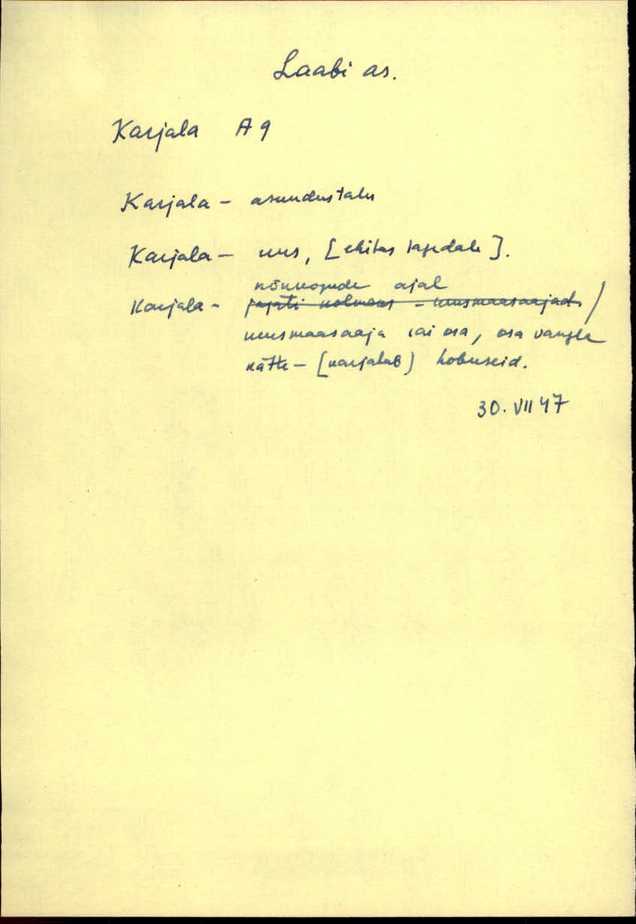 Laabi as.
Karjala A 9
Karjala - asundustalu
Karjala - uus, [ehitas tagedale].
nõukogude ajal
Karjala - jagati kolmeks - uusmaasaajad /
uusmaasaaja sai osa, osa vangla
kätte - [karjatab] hobuseid.
30. VII 47